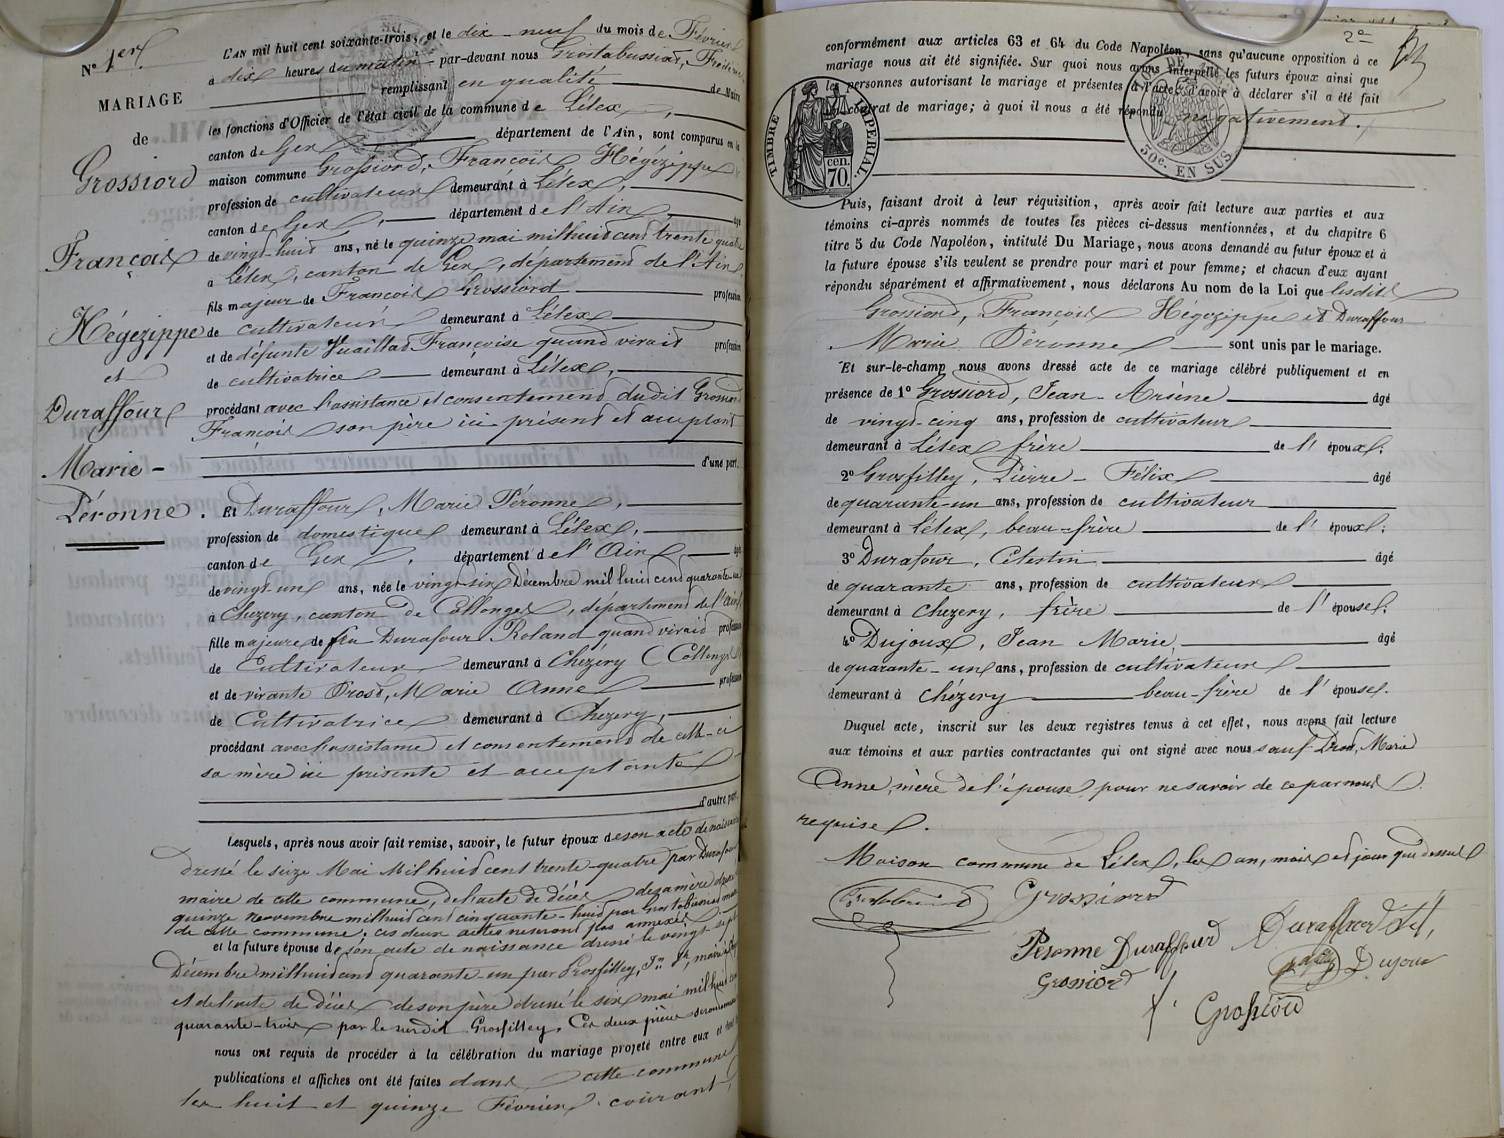 N° 1er
MARIAGE
de
Grossiord
François
Hégézippe
et
Duraffour
Marie -
Péronne.
L'AN mil huit cent soixante-trois, et le dix-neuf du mois de Février
à dix heures du matin par-devant nous Grostabussiat, Frédéric
remplissant en qualité de Maire
les fonctions d'Officier de l'état civil de la commune de Lélex,
canton de Gex département de l'Ain, sont comparus en la
maison commune Grossiord, François Hégézippe
profession de cultivateur demeurant à Lélex,
canton de Gex, département de l'Ain, âgé
de vingt-huit ans, né le quinze mai mil huit cent trente quatre
à Lélex, canton de Gex, département de l'Ain
fils majeur de François Grossiord profession
de cultivateur demeurant à Lélex
et de défunte Vuaillat Françoise quand vivait profession
de cultivatrice demeurant à Lélex,
procédant avec l'assistance et consentement dudit Grossiord
François son père ici présent et acceptant
d'une part.
Et Duraffour, Marie Péronne,
profession de domestique demeurant à Lélex,
canton de Gex, département de l'Ain, âgé
de vingt-un ans, née le vingt-six Décembre mil huit cent quarante-un
à Chezery, canton de Collonges, département de l'Ain
fille majeure de feu Durafour Roland quand vivait profession
de Cultivateur demeurant à Chézery (Collonges
et de vivante Prost, Marie Anne profession
de Cultivatrice demeurant à Chezery,
procédant avec l'assistance et consentement de celle-ci
sa mère ici présente et acceptante
d'autre part.
Lesquels, après nous avoir fait remise, savoir, le futur époux de son acte de naissance
dressé le seize Mai Mil huit cent trente-quatre par Durafour
maire de cette commune, de l'acte de décès de sa mère dressé
quinze novembre mil huit cent cinquante-huit par Grostabussiat maire
de cette commune; ces deux actes resteront pas annexés
et la future épouse de son acte de naissance dressé le vingt sept
Décembre mil huit cent quarante-un par Grosfilley, Jn. maire
et de l'acte de décès de son père dressé le six mai mil huit cent
quarante-trois par le susdit Grosfilley, Ces deux pièces
nous ont requis de procéder à la célébration du mariage projeté entre eux et dont
publications et affiches ont été faites dans cette commune
les huit et quinze Février courant,
2e
conformément aux articles 63 et 64 du Code Napoléon, sans qu'aucune opposition à ce
mariage nous ait été signifiée. Sur quoi nous avons interpellé les futurs époux ainsi que
les personnes autorisant le mariage et présentes à l'acte, d'avoir à déclarer s'il a été fait
contrat de mariage; à quoi il nous a été répondu négativement.
TIMBRE IMPERIAL.
cen.
70.
50c. EN SUS
Puis, faisant droit à leur réquisition, après avoir fait lecture aux parties et aux
témoins ci-après nommés de toutes les pièces ci-dessus mentionnées, et du chapitre 6
titre 5 du Code Napoléon, intitulé Du Mariage, nous avons demandé au futur époux et à
la future épouse s'ils veulent se prendre pour mari et pour femme; et chacun d'eux ayant
répondu séparément et affirmativement, nous déclarons Au nom de la Loi que lesdits
Grossiord, François Hégézippe et Duraffour
Marie Péronne sont unis par le mariage.
Et sur-le-champ nous avons dressé acte de ce mariage célébré publiquement et en
présence de 1° Grossiord, Jean-Arsène âgé
de vingt-cinq ans, profession de cultivateur
demeurant à Lélex frère de l'époux.
2° Grosfilley, Pierre-Félix âgé
de quarante-un ans, profession de cultivateur
demeurant à Lélex, beau-frère de l'époux.
3° Durafour, Célestin âgé
de quarante ans, profession de cultivateur
demeurant à Chezery, frère de l'épouse.
4° Dujoux, Jean Marie, âgé
de quarante-un ans, profession de cultivateur
demeurant à Chézery beau-frère de l'épouse.
Duquel acte, inscrit sur les deux registres tenus à cet effet, nous avons fait lecture
aux témoins et aux parties contractantes qui ont signé avec nous sauf Prost, Marie
Anne, mère de l'épouse, pour ne savoir de ce par nous
requise.
Maison commune de Lélex, les an, mois et jour que dessus
Grossiord
Peronne Duraffour
Grossiord
Dujoux
Grossiord